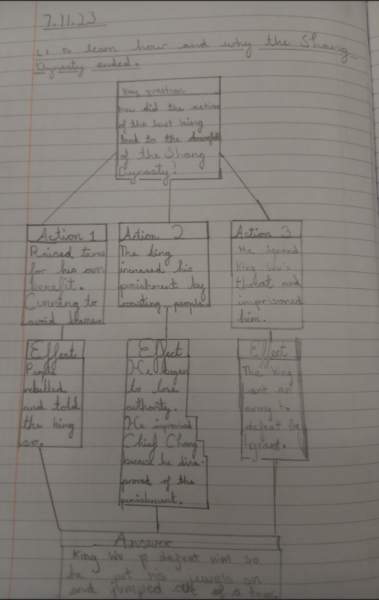 7.11.23
LI to learn how and why the Shang
Dynasty ended.
Key question
How did the action
of the last king
lead to the downfall
of the Shang
Dynasty?
Action 1
Raised taxes
for his own
benefit.
Cunning to
avoid blame.
Effect
People
rebelled
and told
the king
so.
Action 2
The king
increased his
punishment by
roasting people
Effect
He began
to lose
authority.
He imprisoned
Chief Chang
because he disa-
proved of the
punishment.
Action 3
He ignored
King Wu's
threat and
imprisoned
him.
Effect
The king
sent an
army to
defeat the
tyrant.
Answer
King Wu defeat him so
he put his jewels on
and jumped out of a